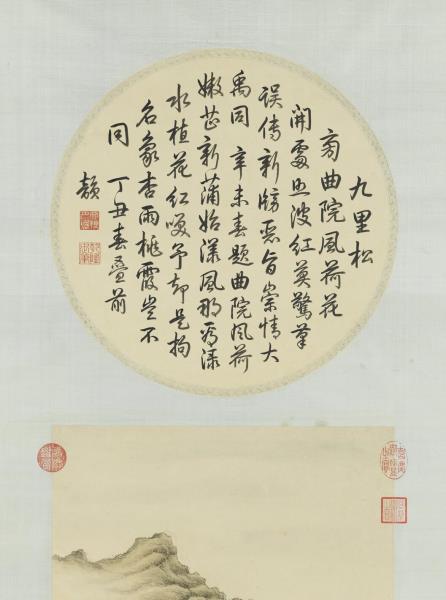 九里松
旁曲院風荷花
開處照波紅莫驚筆
誤傳新牓惡旨崇情大
禹同 辛未春題曲院風荷
嫩芷新蒲始漾風那看淥
水植花紅嗤予却是拘
名象杏雨桃霞豈不
同 丁丑春疊前
韻